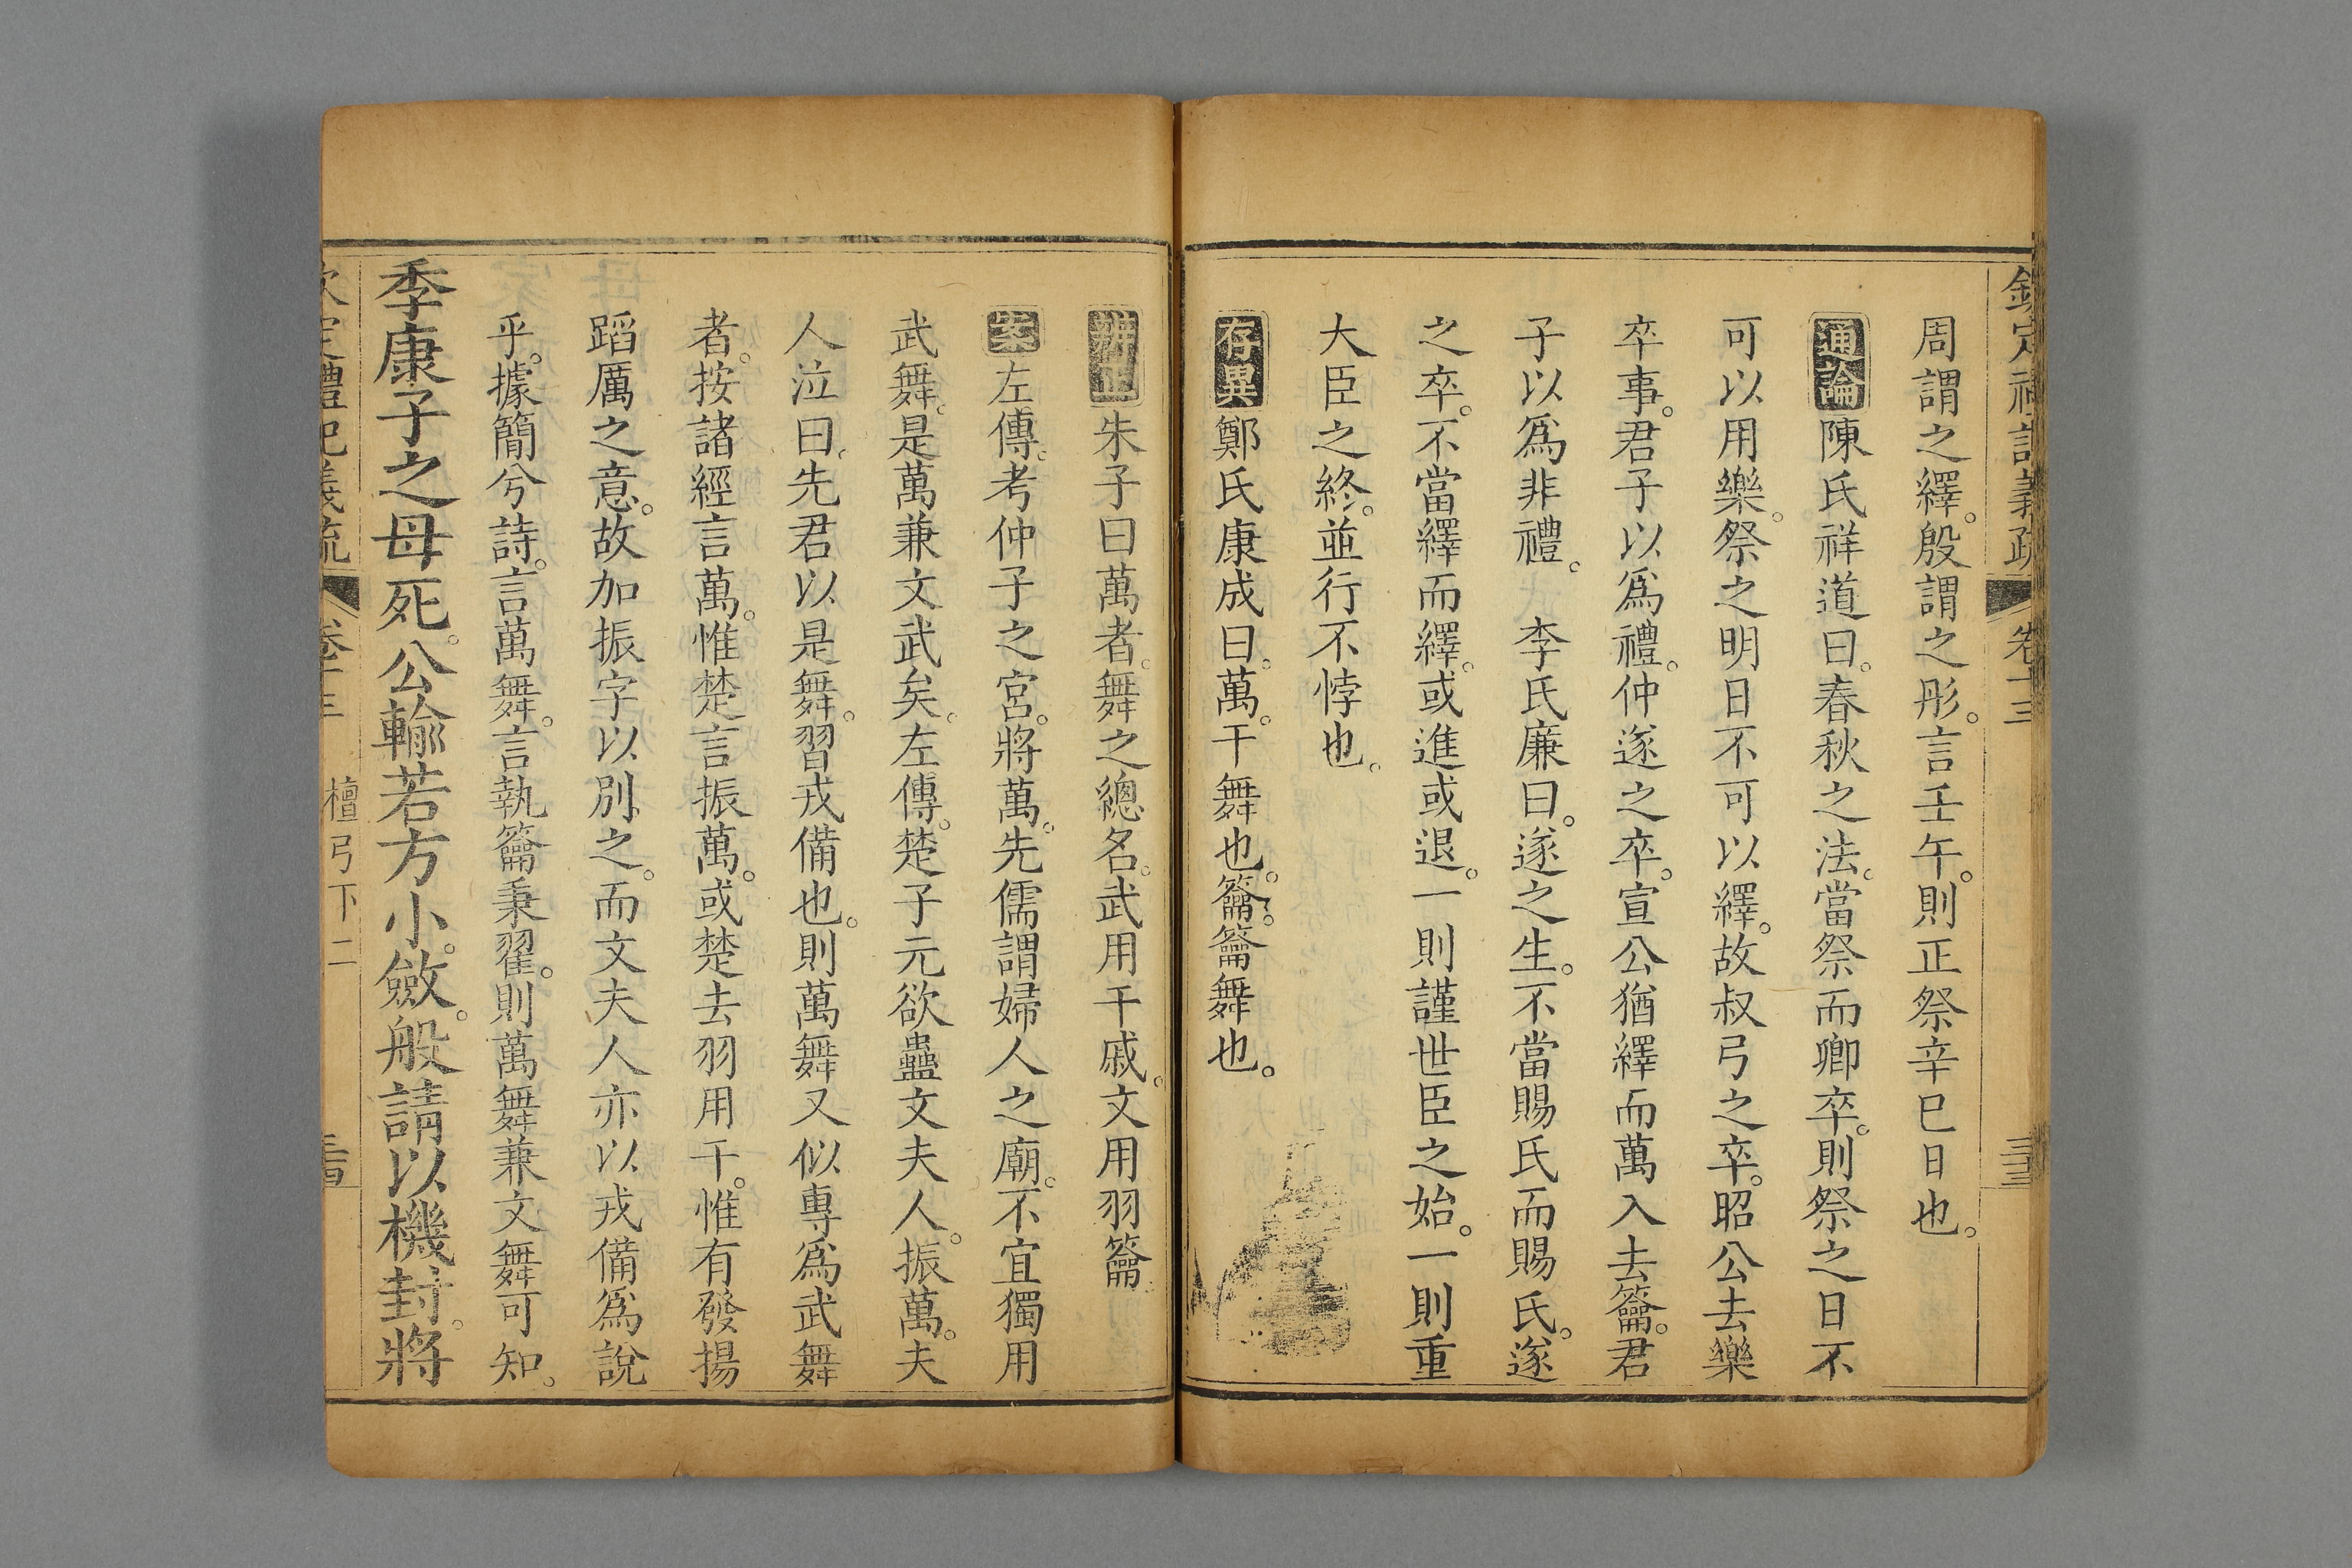 欽定禮記義疏 卷十三 三三
周謂之繹。殷謂之肜。言壬午。則正祭辛巳日也。
通論陳氏祥道曰。春秋之法。當祭而卿卒。則祭之日不
可以用樂。祭之明日不可以繹。故叔弓之卒。昭公去樂
卒事。君子以爲禮。仲遂之卒。宣公猶繹而萬入去籥。君
子以爲非禮。 李氏廉曰。遂之生。不當賜氏而賜氏。遂
之卒。不當繹而繹。或進或退。一則謹世臣之始。一則重
大臣之終。並行不悖也。
存異鄭氏康成曰。萬。干舞也。籥。籥舞也。
辨正朱子曰萬者。舞之總名。武用干戚。文用羽籥
案左傳。考仲子之宮。將萬。先儒謂婦人之廟。不宜獨用
武舞。是萬兼文武矣。左傳。楚子元欲蠱文夫人。振萬。夫
人泣曰。先君以是舞。習戎備也。則萬舞又似專爲武舞
者。按諸經言萬。惟楚言振萬。或楚去羽用干。惟有發揚
蹈厲之意。故加振字以別之。而文夫人亦以戎備爲說
乎。據簡兮詩。言萬舞。言執籥秉翟。則萬舞兼文舞可知。
季康子之母死。公輸若方小。斂。般請以機封。將
欽定禮記義疏 卷十三 檀弓下二 三四